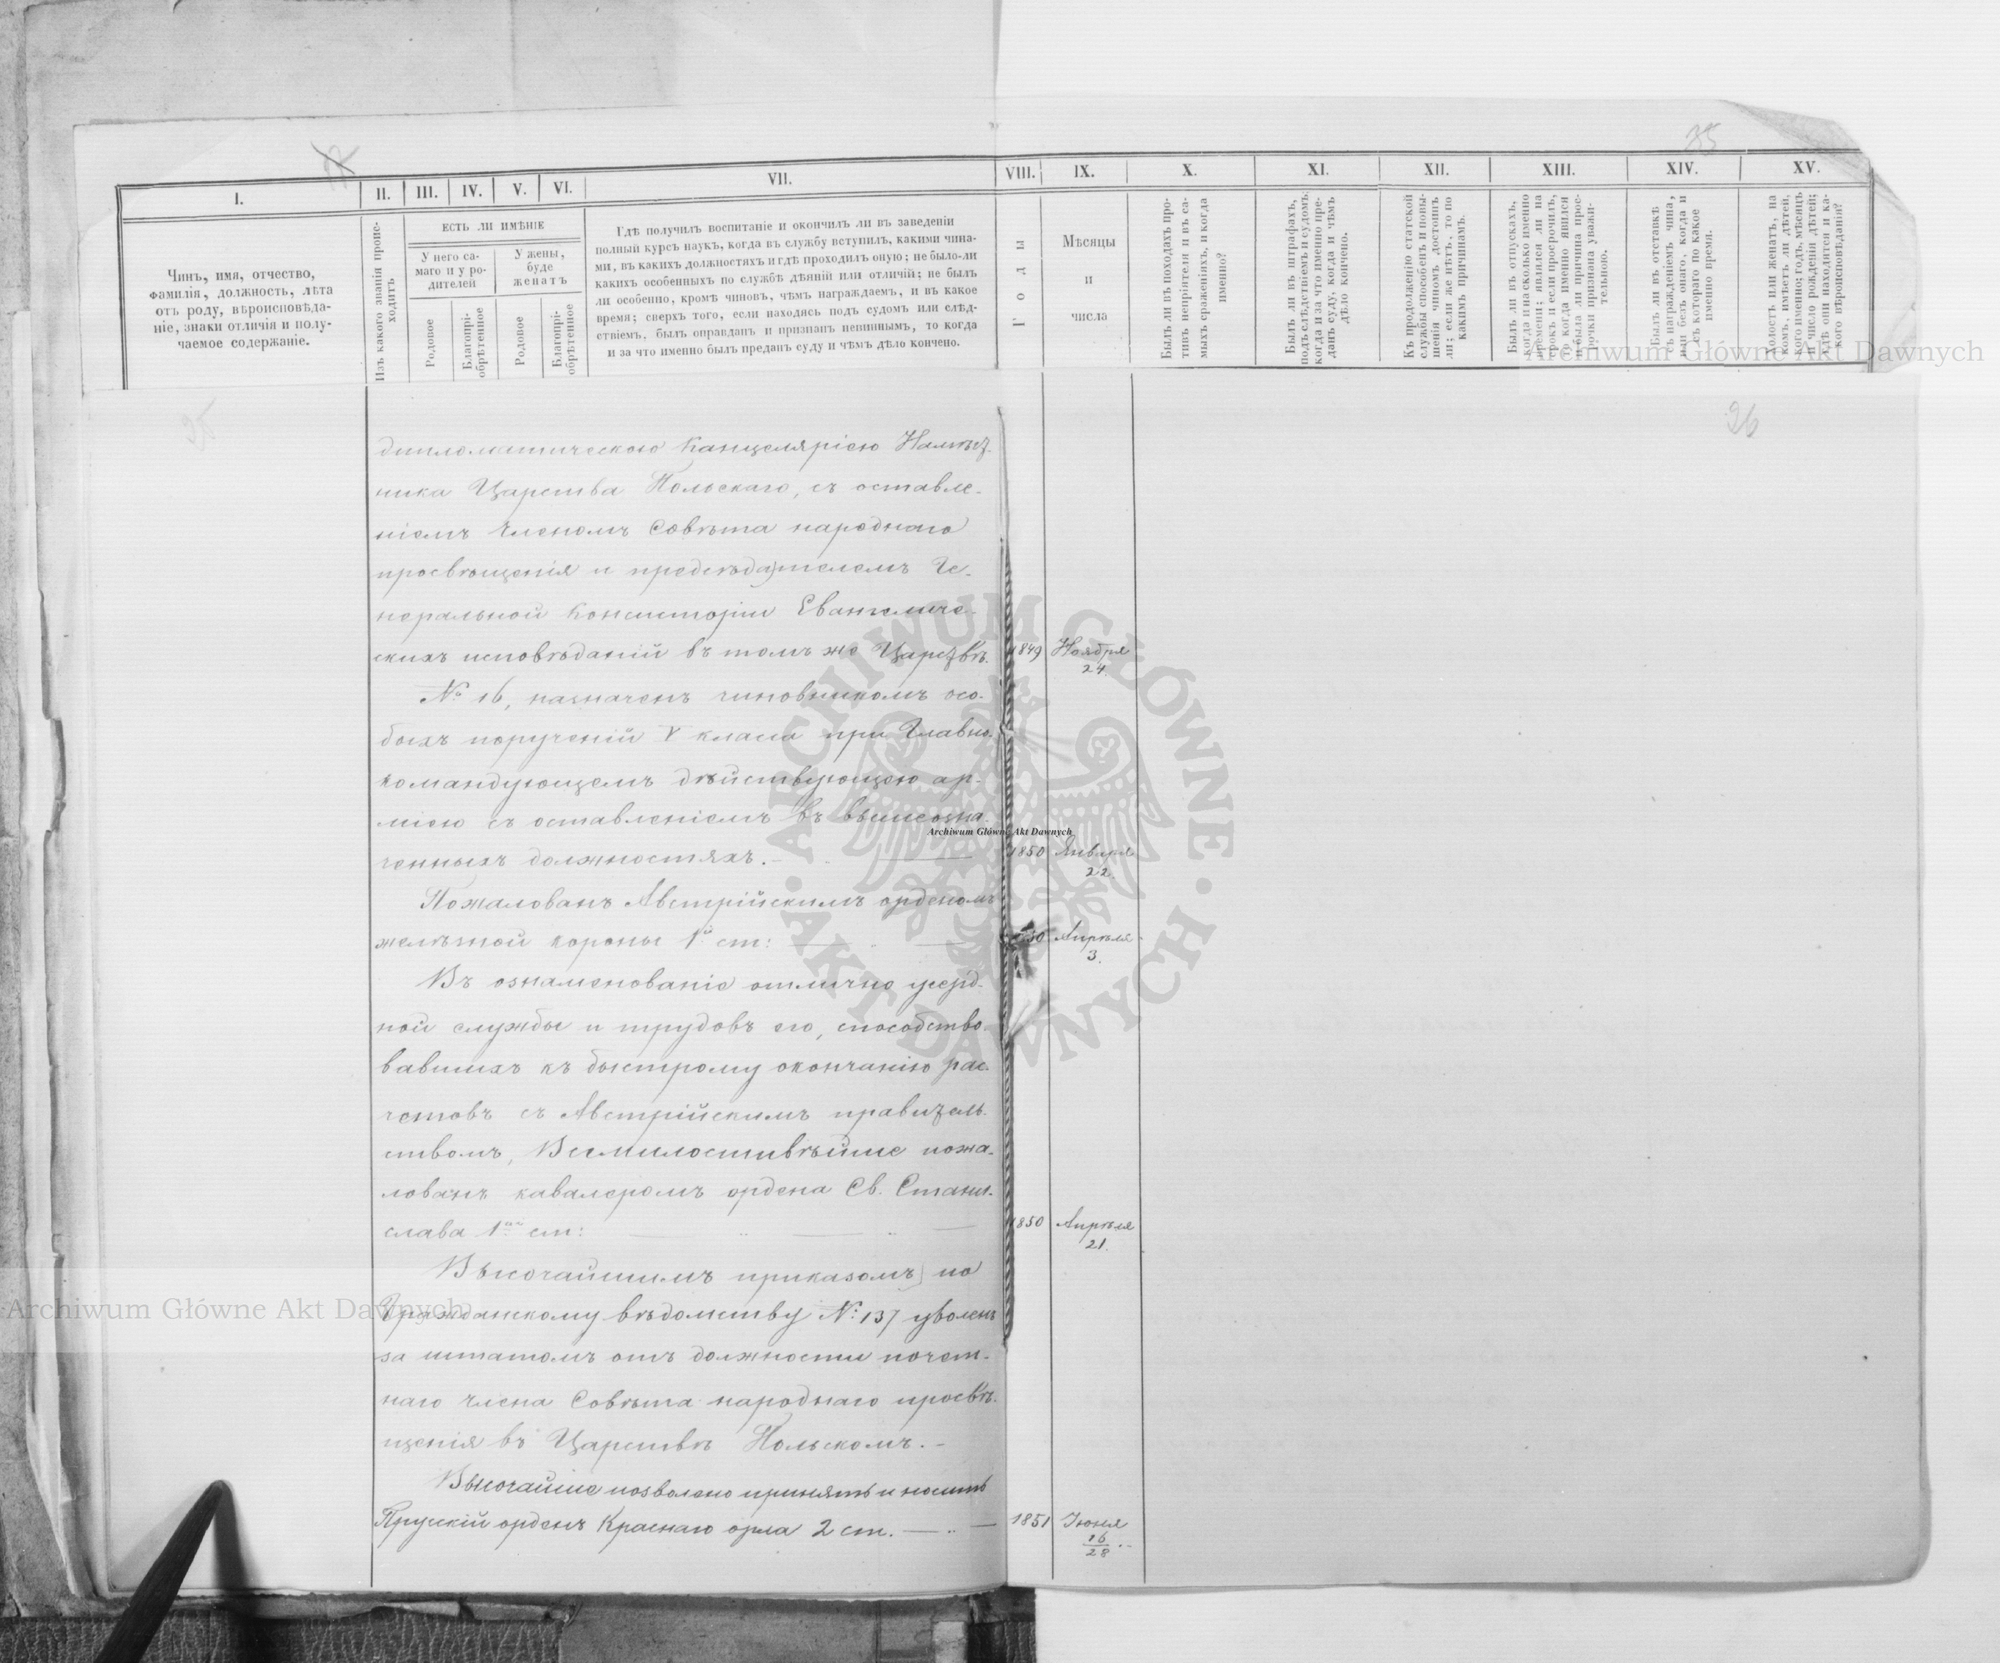 35
I. II. III. IV. V. VI. VII. VIII. IX. X. XI. XII. XIII. XIV. XV.
Чинъ, имя, отчество,
фамилія, должность, лѣта
отъ роду, вѣроисповѣда-
ніе, знаки отличія и полу-
чаемое содержаніе.
Изъ какого званія проис-
ходитъ
ЕСТЬ ЛИ ИМѢНІЕ
У него са-
маго и у ро-
дителей
У жены,
буде
женатъ
Родовое
Благопрі-
обрѣтенное
Родовое
Благопрі-
обрѣтенное
Гдѣ получилъ воспитаніе и окончилъ ли въ заведеніи
полный курсъ наукъ, когда въ службу вступилъ, какими чина-
ми, въ какихъ должностяхъ и гдѣ проходилъ оную; не было-ли
какихъ особенныхъ по службѣ дѣяній или отличій; не былъ
ли особенно, кромѣ чиновъ, чѣмъ награждаемъ, и въ какое
время; сверхъ того, если находясь подъ судомъ или слѣд-
ствіемъ, былъ оправданъ и признанъ невиннымъ, то когда
и за что именно былъ преданъ суду и чѣмъ дѣло кончено.
Годы
Мѣсяцы
и
числа
Былъ ли въ походахъ про-
тивъ непріятеля и въ са-
мыхъ сраженіяхъ, и когда
именно?
Былъ ли въ штрафахъ,
подъ слѣдствіемъ и судомъ;
когда и за что именно пре-
данъ суду, когда и чѣмъ
дѣло кончено.
Къ продолженію статской
службы способенъ и повы-
шенія чиномъ достоинъ
ли; если же нѣтъ, то по
какимъ причинамъ.
Былъ ли въ отпускахъ,
когда и на сколько именно
времени; явился ли на
срокъ и если просрочилъ,
то когда именно явился
и была ли причина прос-
рочки признана уважи-
тельною.
Былъ ли въ отставкѣ
съ награжденіемъ чина,
или безъ онаго, когда и
съ котораго по какое
именно время.
Холостъ или женатъ, на
комъ, имѣетъ ли дѣтей,
кого именно; годъ, мѣсяцъ
и число рожденія дѣтей;
гдѣ они находятся и ка-
кого вѣроисповѣданія?
Archiwum Główne Akt Dawnych
26
дипломатическою Канцеляріею Намѣст-
ника Царства Польскаго, съ оставле-
ніемъ Членомъ Совѣта народнаго
просвѣщенія и предсѣдателемъ Ге-
неральной Консисторіи Евангеличе-
скихъ исповѣданій въ томъ же Царствѣ. 1849 Ноября
24.
№ 16, назначенъ чиновникомъ осо-
быхъ порученій V класса при Главно-
командующемъ дѣйствующею ар-
міею съ оставленіемъ въ вышеозна-
ченныхъ должностяхъ. 1850 Января
22.
Пожалованъ Австрійскимъ орденомъ
желѣзной короны 1й ст: Апрѣля
3.
Въ ознаменованіе отлично усерд-
ной службы и трудовъ его, способство-
вавшихъ къ быстрому окончанію рас-
четовъ съ Австрійскимъ правитель-
ствомъ, Всемилостивѣйше пожа-
лованъ кавалеромъ ордена Св. Стани-
слава 1ой ст: 1850 Апрѣля
21.
Высочайшимъ приказомъ по
Гражданскому вѣдомству №: 137 уволенъ
за штатомъ отъ должности почет-
наго члена Совѣта народнаго просвѣ-
щенія въ Царствѣ Польскомъ.
Высочайше позволено принять и носить
Прускій орденъ Краснаго орла 2 ст. 1851 Іюня
16
28
ARCHIWUM GŁÓWNE
AKT DAWNYCH
Archiwum Główne Akt Dawnych
Archiwum Główne Akt Dawnych